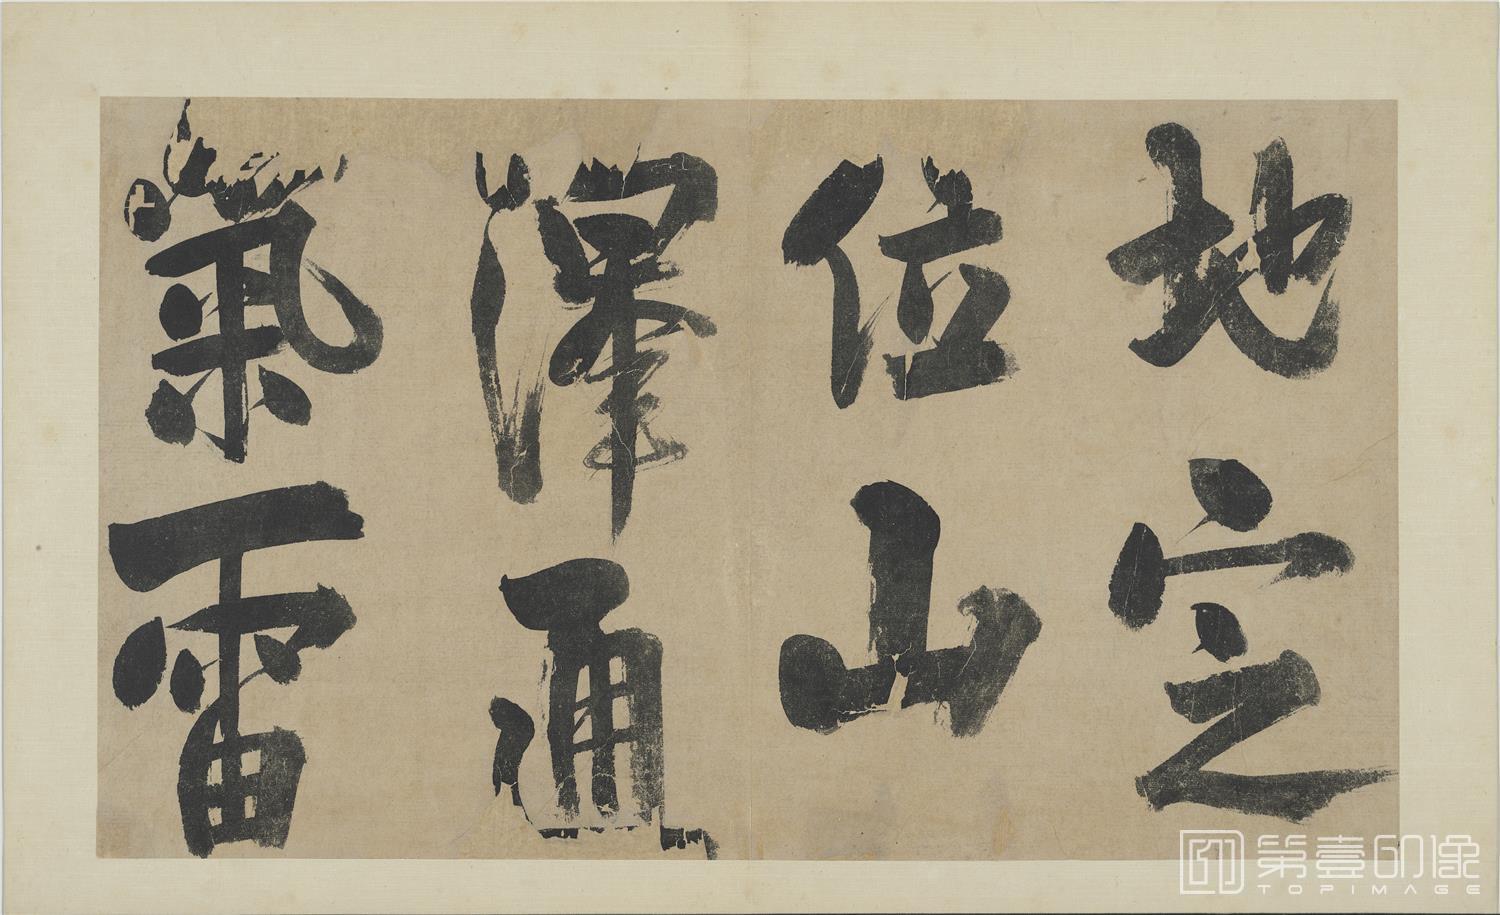 地定
位山
澤通
氣雷
第壹印像
TOPIMAGE